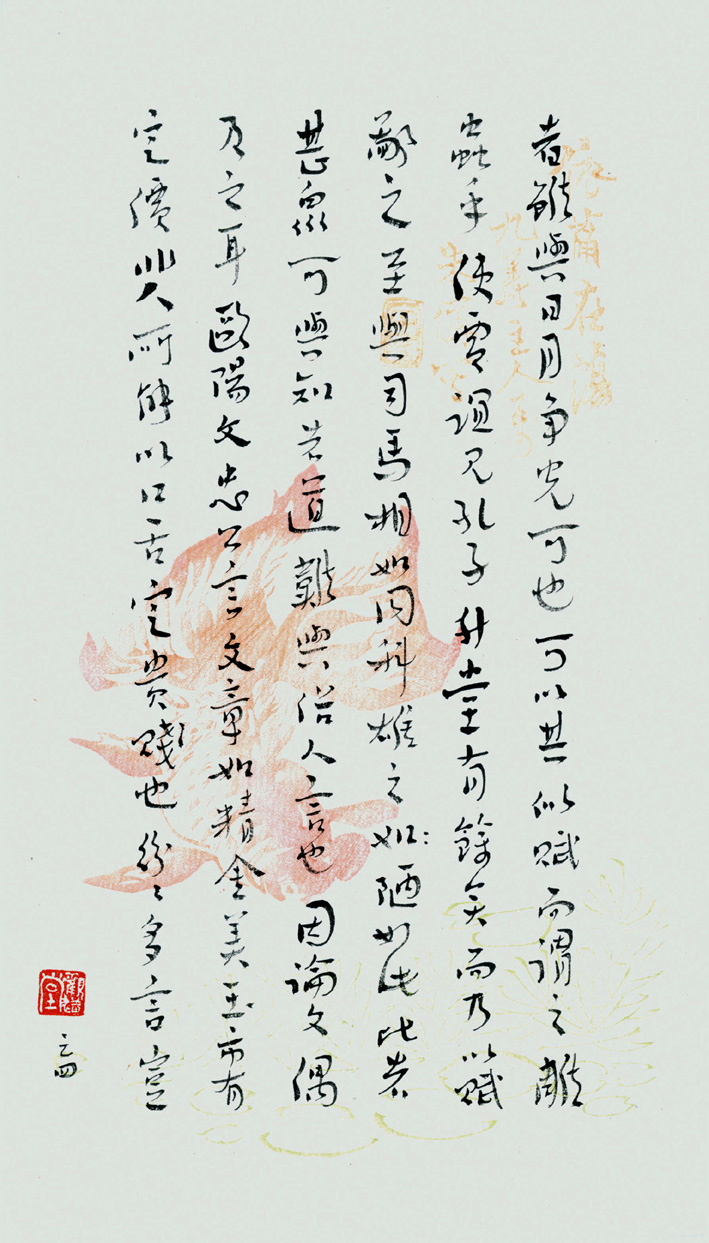 者雖與日月爭光可也可以其似賦而謂之雕
蟲乎使賈誼見孔子升堂有餘矣而乃以賦
鄙之至與司馬相如同科雄之如陋如此比者
甚眾可與知者道難與俗人言也因論文偶
及之耳歐陽文忠公言文章如精金美玉市有
定價非人所能以口舌定貴賤也紛〻多言豈